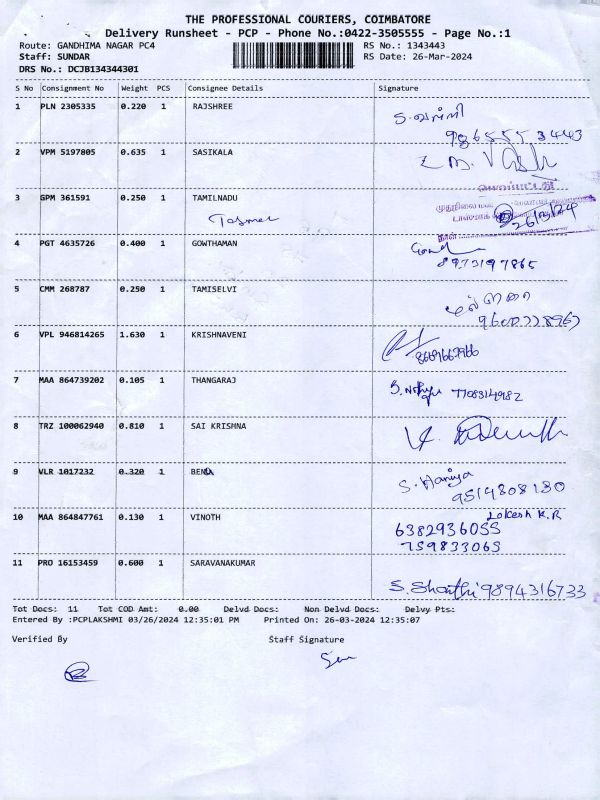 THE PROFESSIONAL COURIERS, COIMBATORE
Delivery Runsheet - PCP - Phone No.:0422-3505555 - Page No.:1
Route: GANDHIMA NAGAR PC4 RS No.: 1343443
Staff: SUNDAR RS Date: 26-Mar-2024
DRS No.: DCJB134344301
S No Consignment No Weight PCS Consignee Details Signature
1 PLN 2305335 0.220 1 RAJSHREE
9865553443
2 VPM 5197805 0.635 1 SASIKALA
3 GPM 361591 0.250 1 TAMILNADU
Tasmac 26/3/24
4 PGT 4635726 0.400 1 GOWTHAMAN
8973197865
5 CMM 268787 0.250 1 TAMISELVI
6 VPL 946814265 1.630 1 KRISHNAVENI
7 MAA 864739202 0.105 1 THANGARAJ
7708314982
8 TRZ 100062940 0.810 1 SAI KRISHNA
9 VLR 1017232 0.320 1 BENU
S. Haniya
9514808130
10 MAA 864847761 0.130 1 VINOTH Lokesh K.R
6382936055
759833065
11 PRO 16153459 0.600 1 SARAVANAKUMAR
S. Shanthi 9894316733
Tot Docs: 11 Tot COD Amt: 0.00 Delvd Docs: Non Delvd Docs: Delvy Pts:
Entered By :PCPLAKSHMI 03/26/2024 12:35:01 PM Printed On: 26-03-2024 12:35:07
Verified By Staff Signature